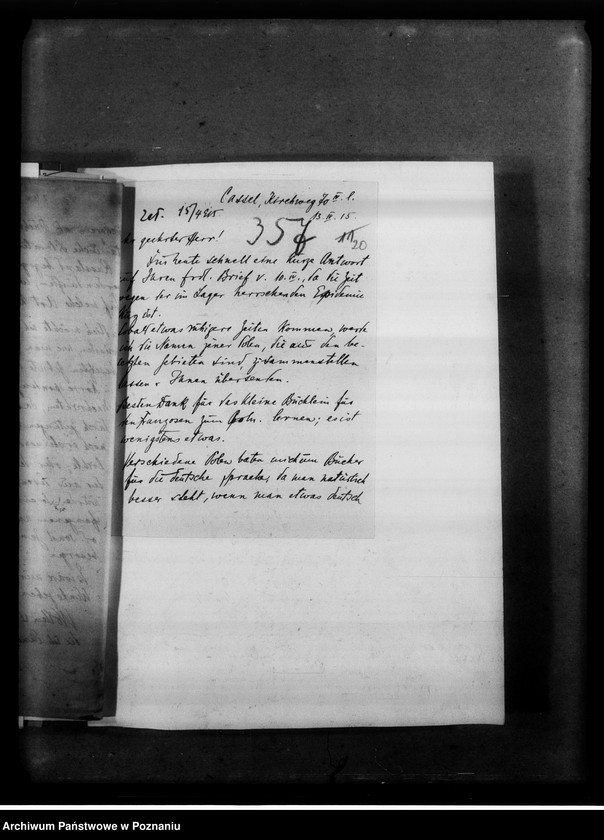 Cassel, Kirchweg 70 II. l.
15/4 915 13. IV. 15.
357
20
geehrter Herr!
Nur heute schnell eine kurze Antwort
auf Ihren frdl. Brief v. 10. IV., da die Zeit
wegen der im Lager herrschenden Epidemie
ist.
etwas ruhigere Zeiten kommen, werde
ich die Namen jener Polen, die aus den be-
setzten Gebieten sind, zusammenstellen
lassen u. Ihnen übersenden.
Besten Dank für das kleine Büchlein für
den Franzosen zum Poln. lernen; es ist
wenigstens etwas.
Verschiedene Polen baten mich um Bücher
für die deutsche Sprache, da man natürlich
besser steht, wenn man etwas deutsch
Archiwum Państwowe w Poznaniu